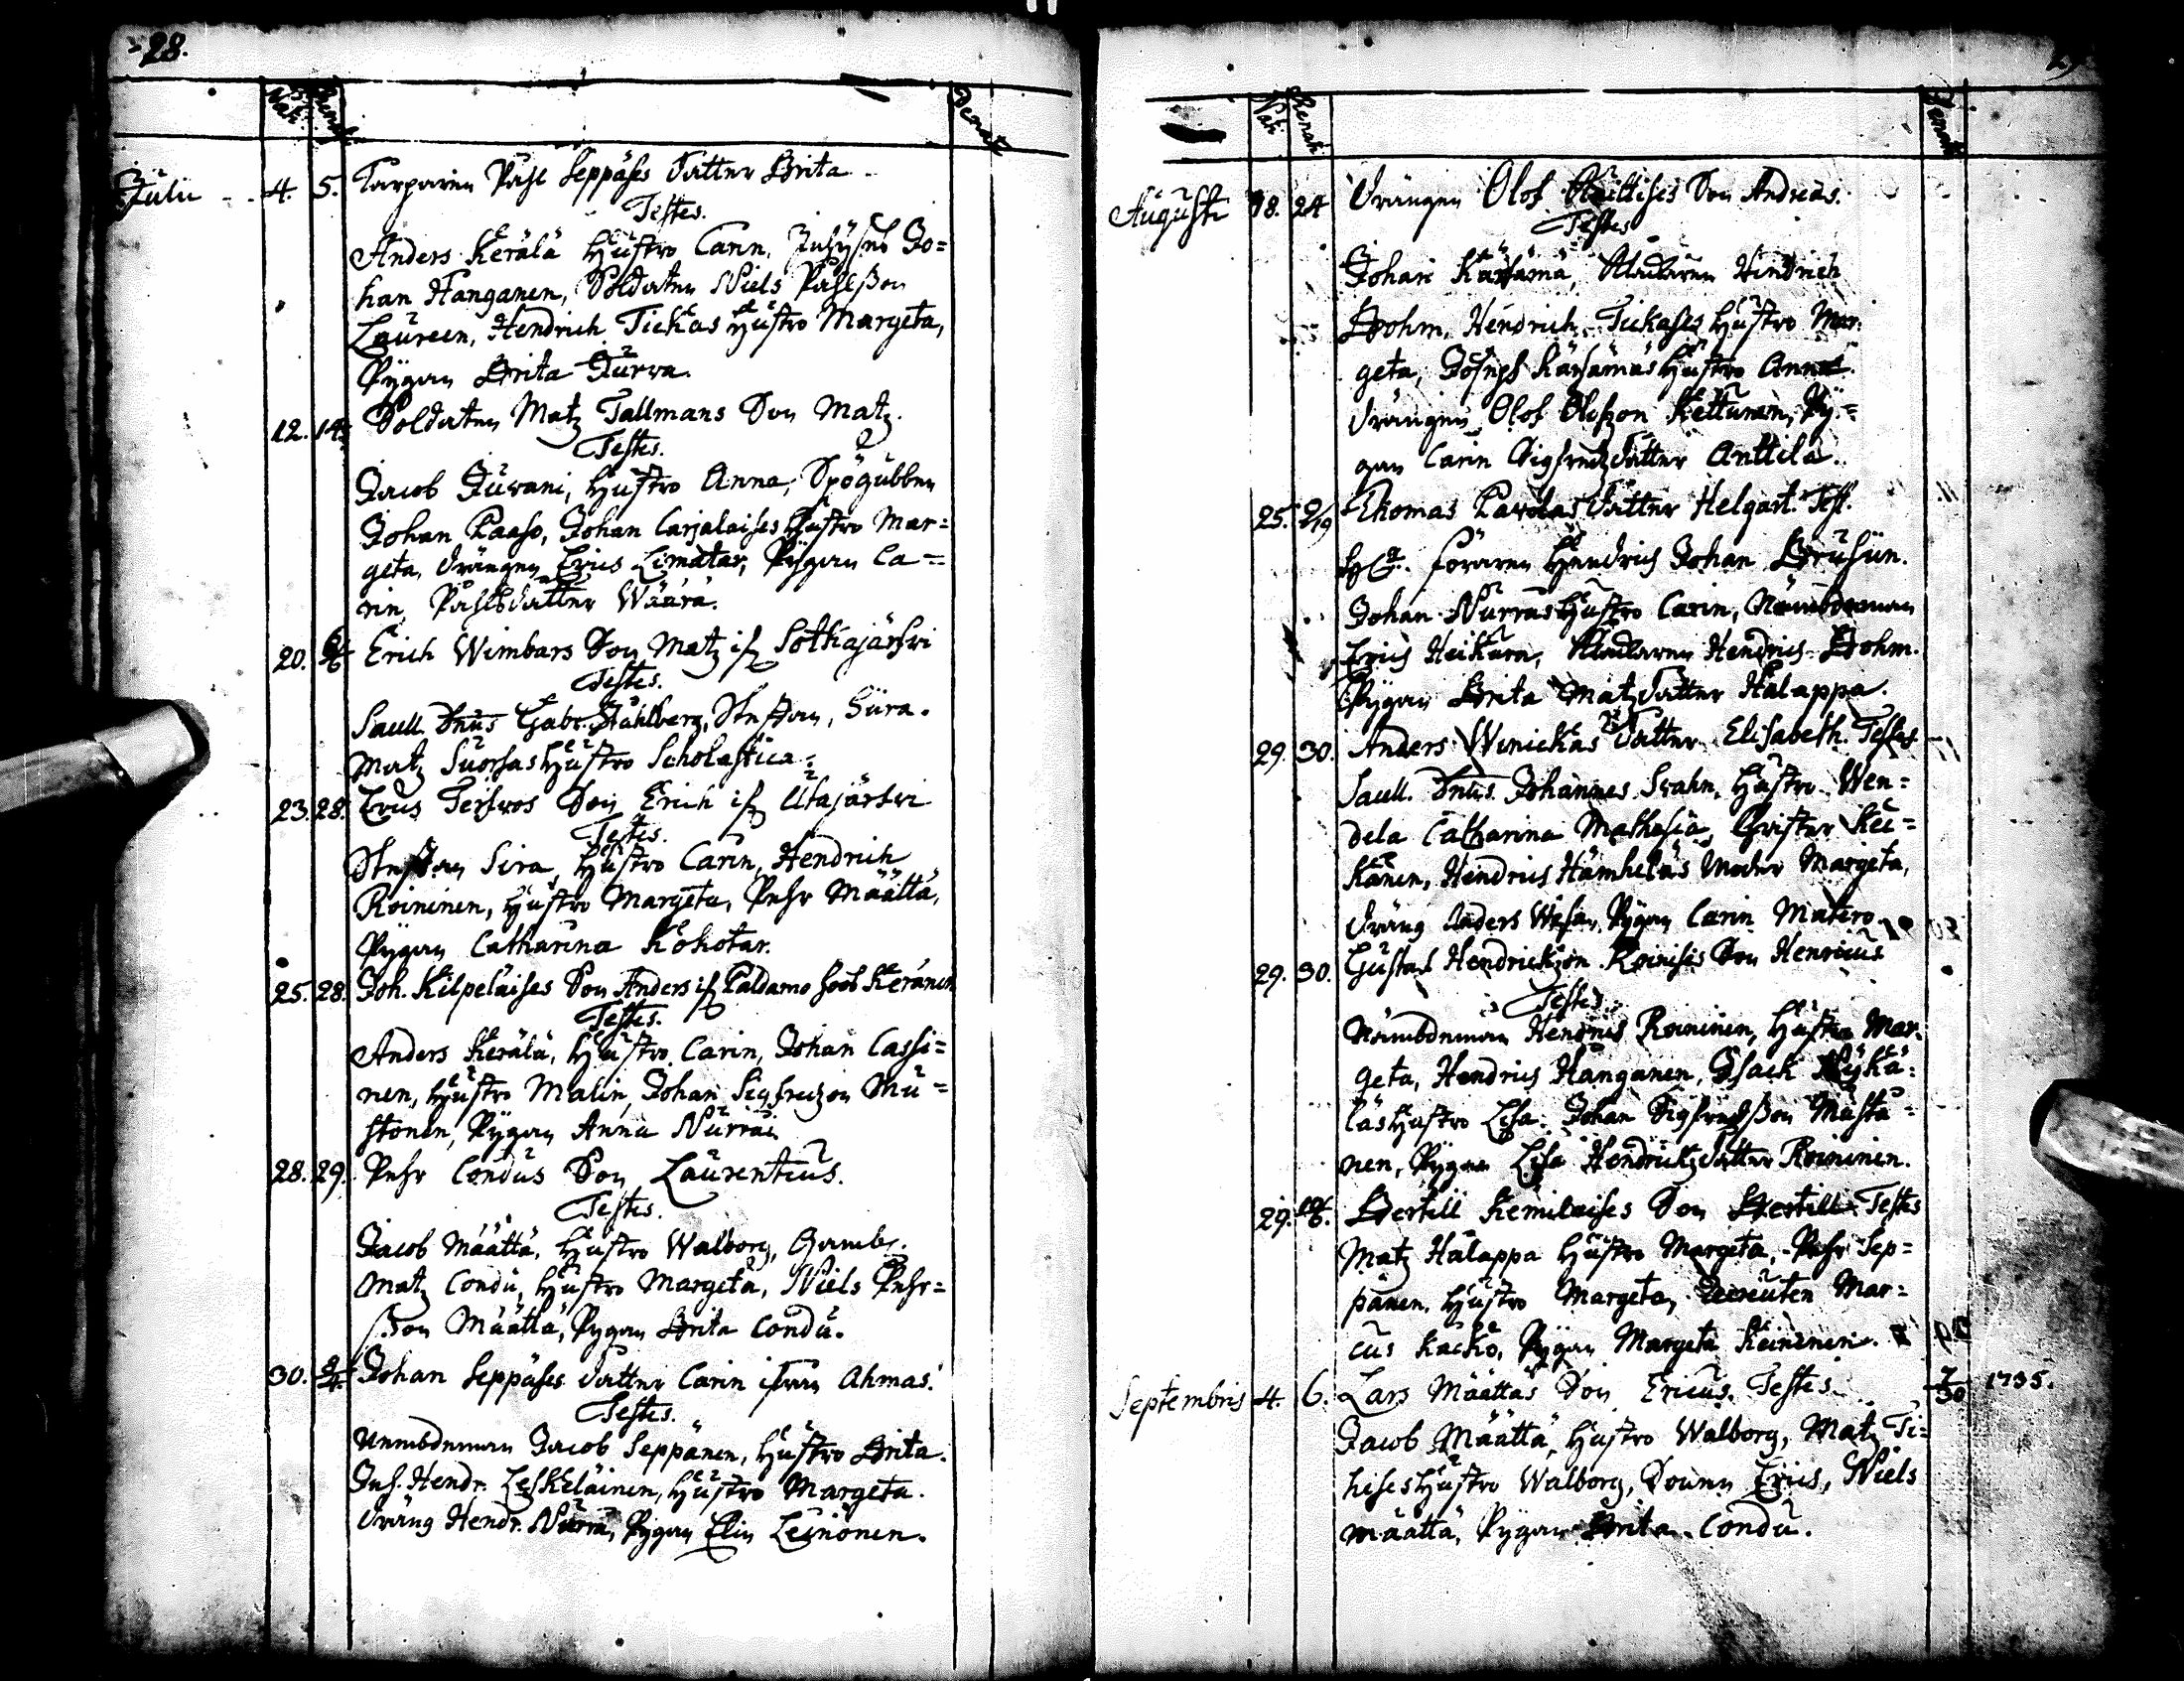 28.
Nat. Renat. Denat.
Julii 4. 5. Torparen Påhl Seppäses Dotter Brita
Testes.
Anders Kerälä Hustro Carin, Inhyses Jo=
han Hanganen, Soldaten Niels Påhlsson
Laureen, Hendrich Tickas Hustro Margeta,
Pygan Brita Jurva.
12. 14. Soldaten Matz Tallmans Son Matz.
Testes.
Jacob Juvani, Hustro Anna, Spögubben
Johan Paaso, Johan Carjalaises Hustro Mar=
geta, Drängen Erius Limatar, Pygan Ca=
rin Påhlsdotter Wäärä.
20. Erich Wimbars Son Matz if Sotkajärfwi
Testes.
Saell. Dnus Gabr. Ståhlberg, Steffan, Süra.
Matz Suorsas Hustro Scholastica.
23. 28. Erius Terfwos Son Erich if Utajärfwi
Testes.
Steffan Sira, Hustro Carin, Hendrich
Roininen, Hustro Margeta, Pehr Määttä,
Pygan Catharina Kokotar.
25. 28. Joh. Kilpeläises Son Anders if Paldamo hoos Keränen
Testes.
Anders Kerälä, Hustro Carin, Johan Cassi=
nen, Hustro Malin, Johan Sigfredzon Mu=
stonen, Pygan Anna Nurrai
28. 29. Pehr Condus Son Laurentius.
Testes.
Jacob Määttä, Hustro Walborg,
Matz Condu, Hustro Margeta, Niels Pehr=
sson Määttä, Pygan Brita Condu.
30. 2/4. Johan Seppäses Dotter Carin ifrån Ahmas.
Testes.
Nembdeman Jacob Seppänen, Hustro Brita.
Inh. Hendr. Leskeläinen, Hustro Margeta.
Dräng Hendr. Nurra, Pygan Elin Leinonen.
Nat. Renat. Denat.
Augusti 18. 24 Drängen Olof Son Andreas.
Testes
Johan Kärsämä, Hindrich
Bohm, Hendrich Tickases Hustro Mar=
geta, Joseph Kärsämäs Hustro Anna.
Drängen Olof Olofzon Kettunen, Py=
gan Carin Sigfredzdotter Anttila.
25. 2/19 Thomas Pavolas Dotter Helgart. Test.
Föraren Hendrich Johan Bruhün.
Johan Nurras Hustro Carin, Nämbdeman
Erius Heikura, Hendrich Bohm.
Pygan Brita Matzdotter Halappa.
29. 30. Anders Winickas Dotter Elisabeth. Testes
Saell. Dnus Johannes Svahn, Hustro Wen=
dela Catharina Mathesia, Christer Kee=
känen, Hendrius Hämheläs Moder Margeta,
Dräng Anders Wesa, Pygan Carin Matero.
29. 30. Gustaf Hendrickzon Roinises Son Henricus
Testes.
Nämbdeman Hendrius Roininen, Hustro Mar=
geta, Hendrius Hanganen, Isach
läs Hustro Lisa. Johan Sigfredsson Musta=
nen, Pygan Lisa Hendrickzdotter Roininen.
29. Bertill Kemilaises Son Bertill. Testes
Matz Halappa Hustro Margeta, Pehr Sep=
pänen, Hustro Margeta, Mar=
cus Kacko, Pygan Margeta Keinänen.
Septembris 4. 6. Lars Määttäs Son Ericus. Testes 7/30 1735.
Jacob Määttä, Hustro Walborg, Matz Ti=
hises Hustro Walborg, Sonen Erius, Niels
Määttä, Pygan Brita Condu.